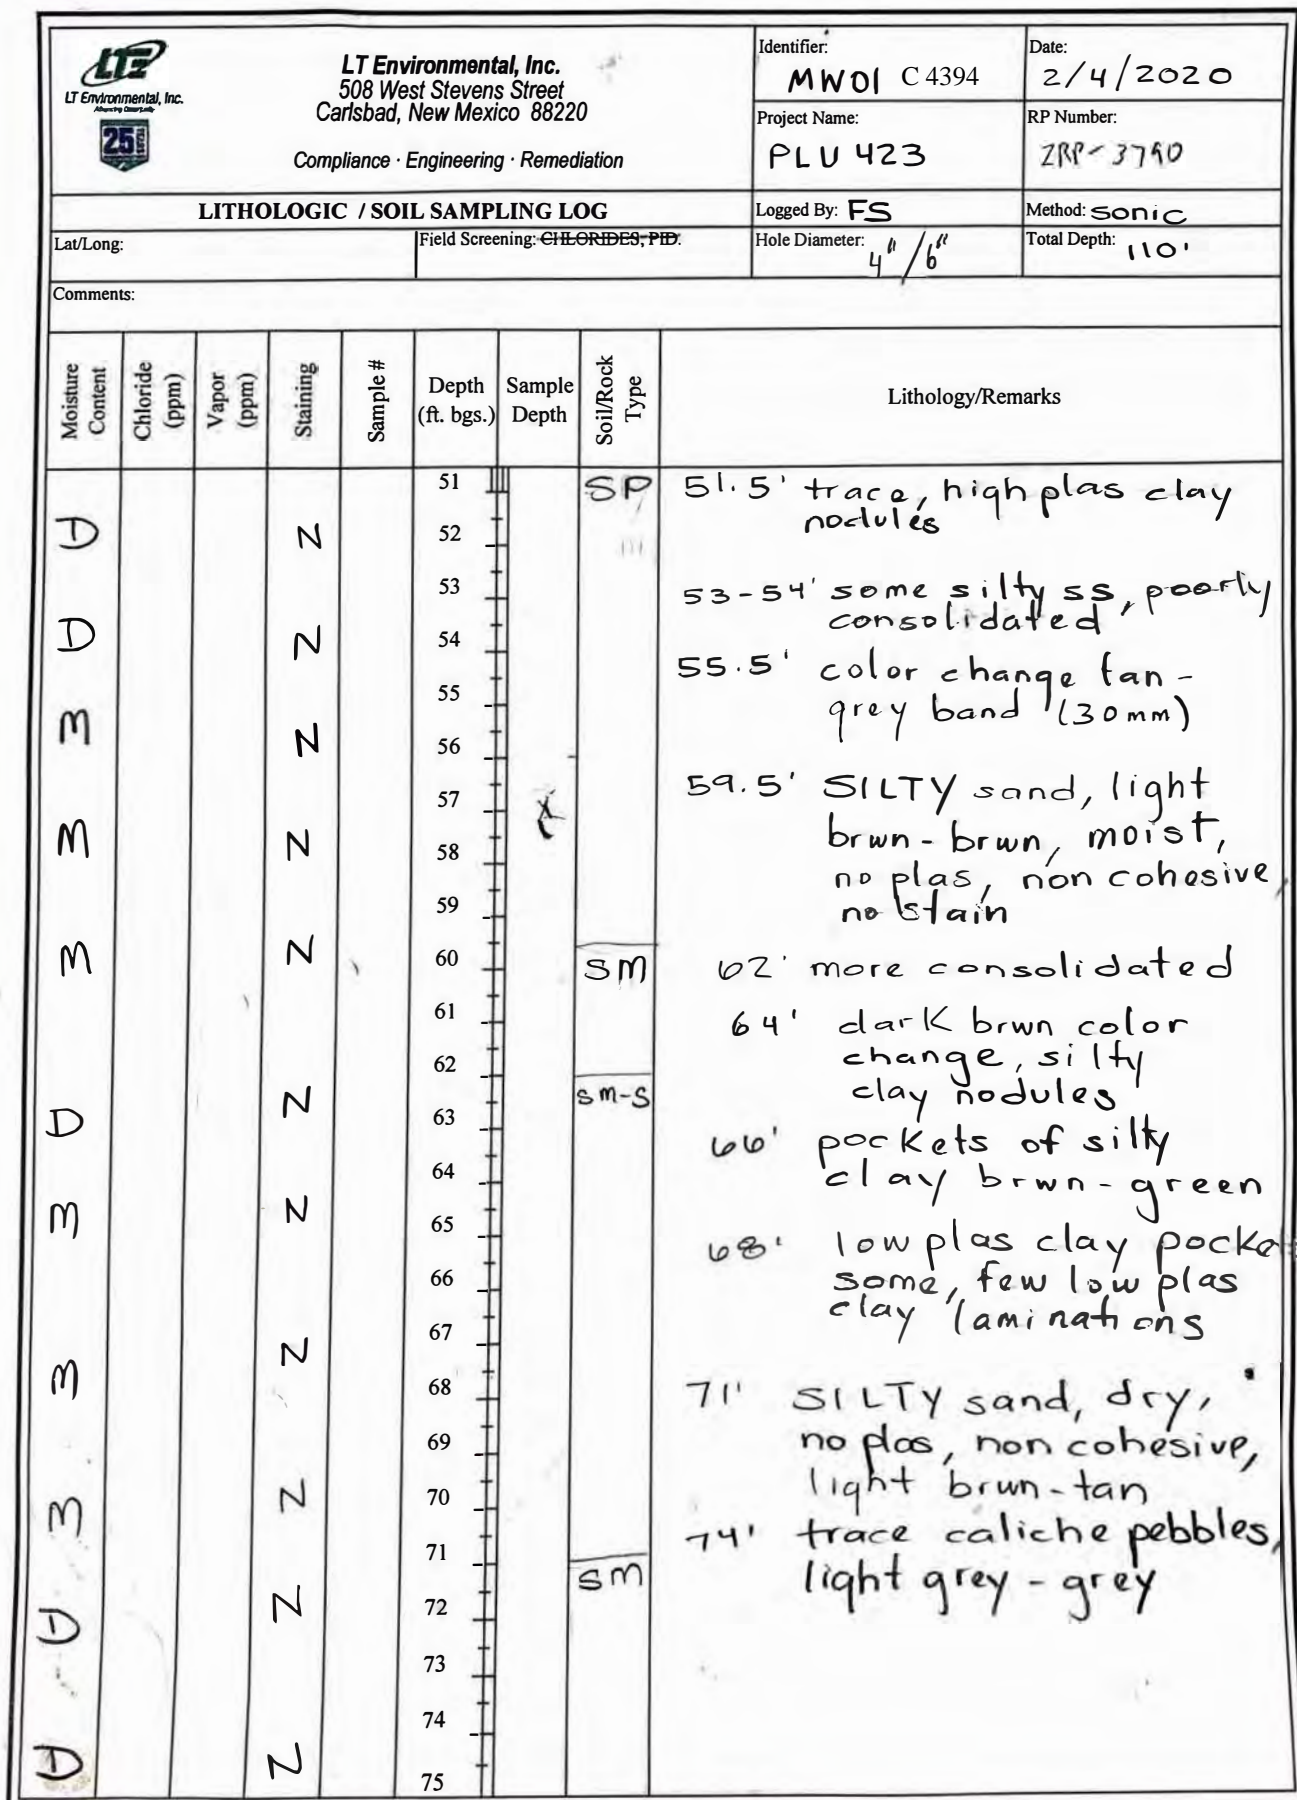 LTE
LT Environmental, Inc.
Advancing Opportunity
25
LT Environmental, Inc.
508 West Stevens Street
Carlsbad, New Mexico 88220
Compliance · Engineering · Remediation
Identifier:
MW01 C 4394
Date:
2/4/2020
Project Name:
PLU 423
RP Number:
2RP-3790
LITHOLOGIC / SOIL SAMPLING LOG
Logged By: FS
Method: sonic
Lat/Long:
Field Screening: CHLORIDES, PID.
Hole Diameter: 4"/6"
Total Depth: 110'
Comments:
Moisture Content
Chloride (ppm)
Vapor (ppm)
Staining
Sample #
Depth (ft. bgs.)
Sample Depth
Soil/Rock Type
Lithology/Remarks
51 SP 51.5' trace, high plas clay
nodules
D N 52
53 53-54' some silty ss, poorly
consolidated
D N 54
55 55.5' color change tan-
grey band (30mm)
M N 56
57 59.5' SILTY sand, light
M N 58 brwn-brwn, moist,
no plas, non cohesive
59 no stain
M N 60 SM 62' more consolidated
61 64' dark brwn color
change, silty
62 clay nodules
D N 63 sm-s
66' pockets of silty
64 clay brwn-green
M N 65
68' low plas clay pocke
66 some, few low plas
clay laminations
67
M N 68 71' SILTY sand, dry,
69 no plas, non cohesive,
light brwn-tan
M N 70
74' trace caliche pebbles,
71 SM light grey - grey
D N 72
73
74
D N 75